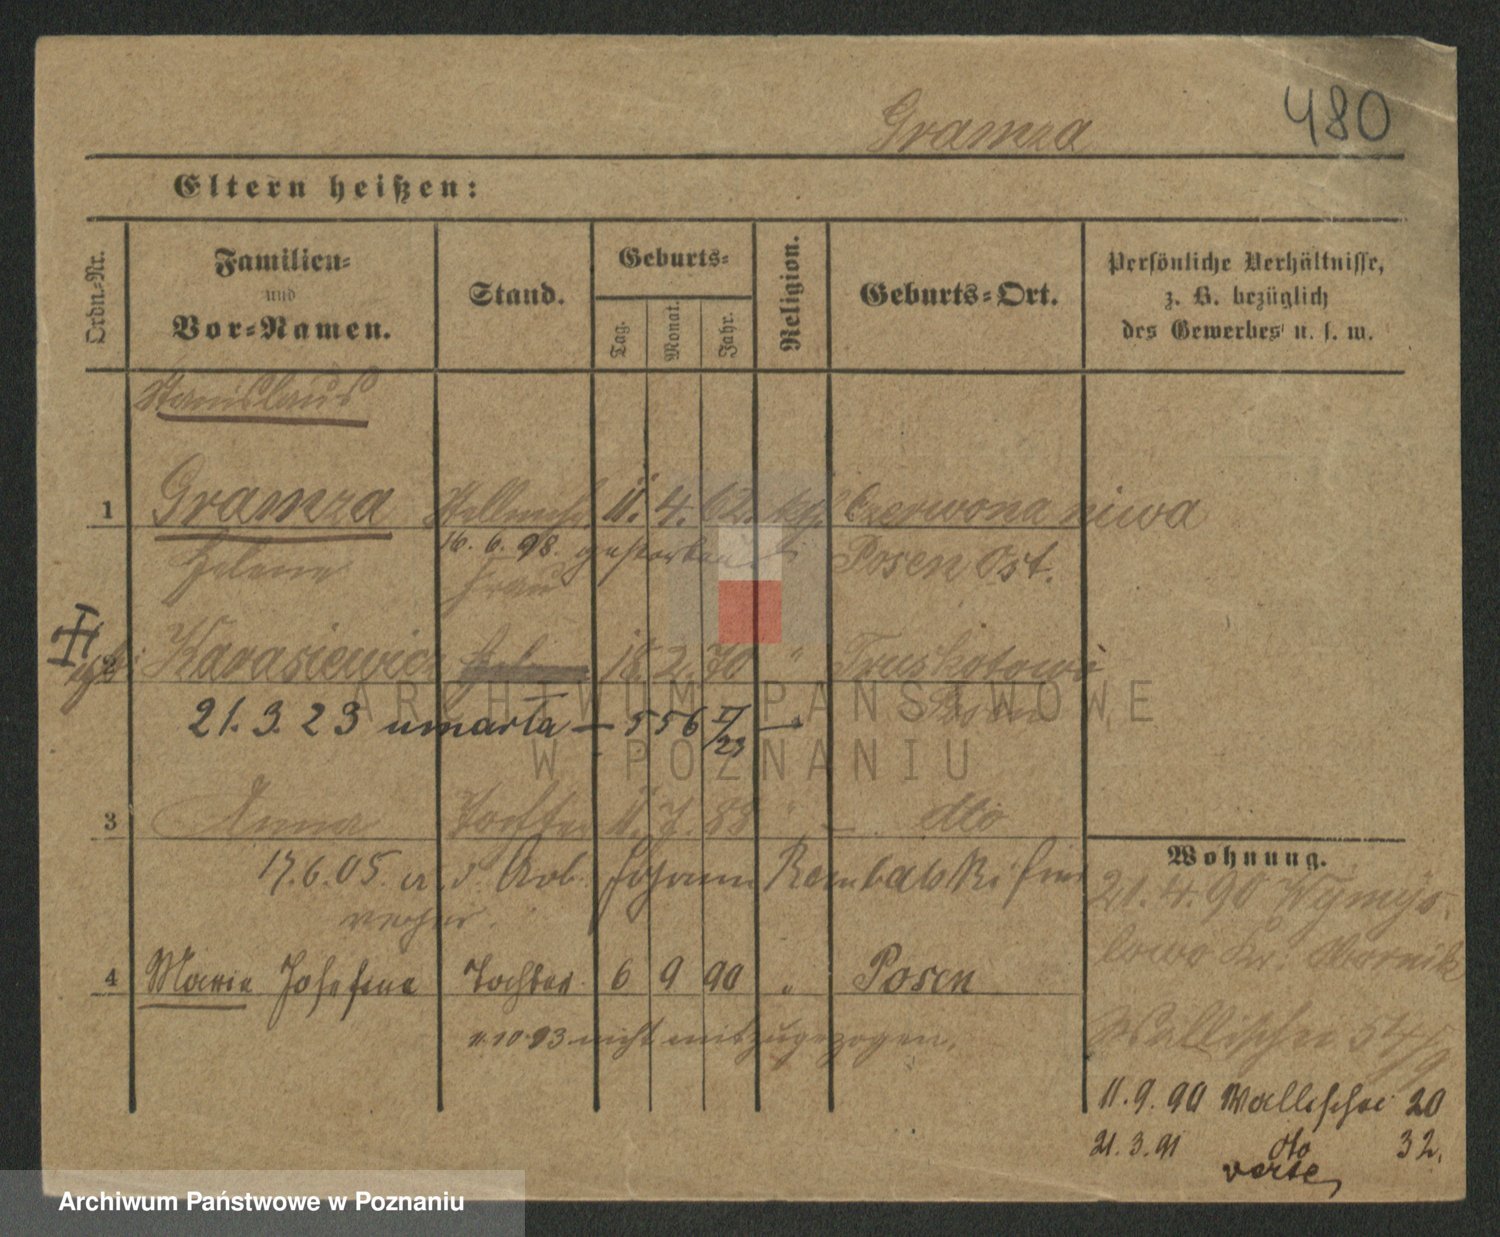 Gramza 480
Eltern heißen:
Ordn.-Nr.
Familien-
und
Vor-Namen.
Stand.
Geburts-
Tag.
Monat.
Jahr.
Religion.
Geburts-Ort.
Persönliche Verhältnisse,
z. B. bezüglich
des Gewerbes u. s. w.
Stanislaus
1 Gramza 11. 4. 62. Czerwona niwa
16. 6. 98. gestorben Posen Ost.
Helene Frau
2 Karasiewicz 18. 2. 70 " Truskotowo
Posen
21. 3. 23 umarła — 556 II/23
3 Anna Tochter 11. 7. 88 " dto
17. 6. 05. d. Arb. Johann Rembalski hier
4 Marie Josefine Tochter 6 9 90 " Posen
11 10 93 nicht mitzugezogen.
Wohnung.
21. 4. 90 Wymys-
lowo Kr. Obornik
Wallischei 54/9
11. 9. 90 Wallischei 20
21. 3. 91 dto 32.
verte
ARCHIWUM PAŃSTWOWE
W POZNANIU
Archiwum Państwowe w Poznaniu